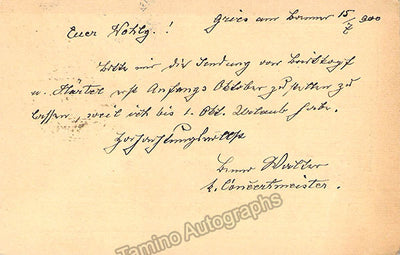 Euer Wohlg.! Gries am Brenner 15/7 900
Bitte mir die Sendung von Breitkopf
u. Härtel erst Anfangs Oktober zu
lassen, weil ich bis 1. Okt. Urlaub habe.
Hochachtungsvollst
Benno Walter
k. Concertmeister.
Tamino Autographs